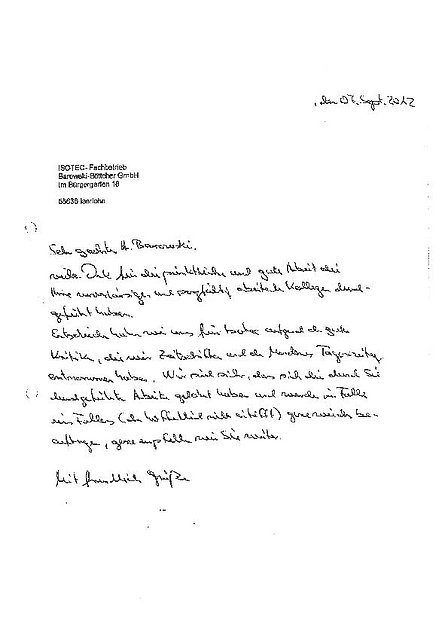 , den 07. Sept. 2012
ISOTEC-Fachbetrieb
Barowski-Böttcher GmbH
Im Bürgergarten 16
58638 Iserlohn
Sehr geehrter H. Barowski,
vielen Dank für die pünktliche und gute Arbeit die
Ihre zuverlässigen und sorgfältig arbeitende Kollegen durch-
geführt haben.
Entschieden haben wir uns für Isotec aufgrund d. guten
Kritiken, die wir Zeitschriften und der Mendener Tageszeitung
entnommen haben. Wir sind sicher, dass sich die durch Sie
durchgeführte Arbeiten gelohnt haben und werden im Falle
ein Falles (der hoffentlich nicht eintrifft) gerne wieder be-
auftragen, gerne empfehlen wir Sie weiter.
Mit freundlichen Grüßen